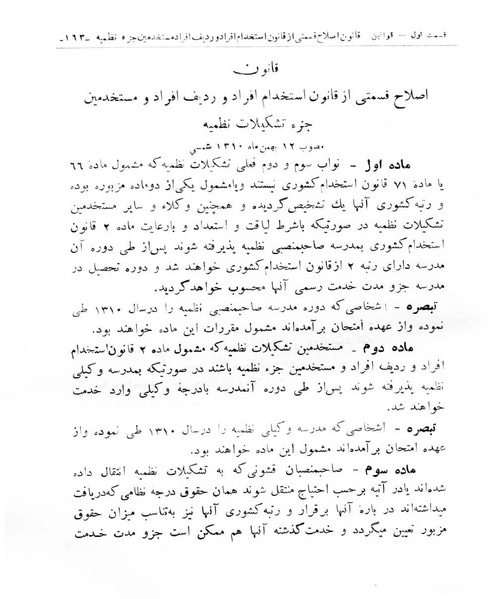 قسمت اول — قوانین قانون اصلاح قسمتی از قانون استخدام افراد و ردیف افراد مستخدمین جزء نظمیه -۱۶۳-
قانون
اصلاح قسمتی از قانون استخدام افراد و ردیف افراد و مستخدمین
جزء تشکیلات نظمیه
مصوب ۱۲ بهمن ماه ۱۳۱۰ شمسی
ماده اول - نواب سوم و دوم فعلی تشکیلات نظمیه که مشمول مادۀ ۶۶
یا مادۀ ۷۱ قانون استخدام کشوری نیستند و یا مشمول یکی از دو ماده مزبوره بوده
و رتبه کشوری آنها یک تشخیص گردیده و همچنین وکلاء و سایر مستخدمین
تشکیلات نظمیه در صورتیکه باشرط لیاقت و استعداد و بارعایت ماده ۲ قانون
استخدام کشوری بمدرسه صاحبمنصبی نظمیه پذیرفته شوند پس از طی دوره آن
مدرسه دارای رتبه ۲ از قانون استخدام کشوری خواهند شد و دوره تحصیل در
مدرسه جزو مدت خدمت رسمی آنها محسوب خواهد گردید.
تبصره - اشخاصی که دوره مدرسه صاحبمنصبی نظمیه را در سال ۱۳۱۰ طی
نموده و از عهده امتحان بر آمده‌اند مشمول مقررات این ماده خواهند بود.
ماده دوم - مستخدمین تشکیلات نظمیه که مشمول ماده ۲ قانون استخدام
افراد و ردیف افراد و مستخدمین جزء نظمیه باشند در صورتیکه بمدرسه وکیلی
نظمیه پذیرفته شوند پس از طی دوره آنمدرسه بادرجۀ وکیلی وارد خدمت
خواهند شد.
تبصره - اشخاصی که مدرسه وکیلی نظمیه را در سال ۱۳۱۰ طی نموده و از
عهده امتحان برآمده‌اند مشمول این ماده خواهند بود.
ماده سوم - صاحبمنصبان قشونی که به تشکیلات نظمیه انتقال داده
شده‌اند یا در آتیه بر حسب احتیاج منتقل شوند همان حقوق درجه نظامی که دریافت
میداشته‌اند در بارۀ آنها برقرار و رتبه کشوری آنها نیز به‌تناسب میزان حقوق
مزبور تعیین میگردد و خدمت گذشته آنها هم ممکن است جزو مدت خدمت